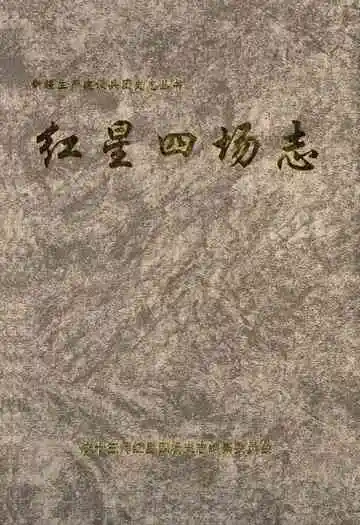 新疆生产建设兵团史志丛书
红星四场志